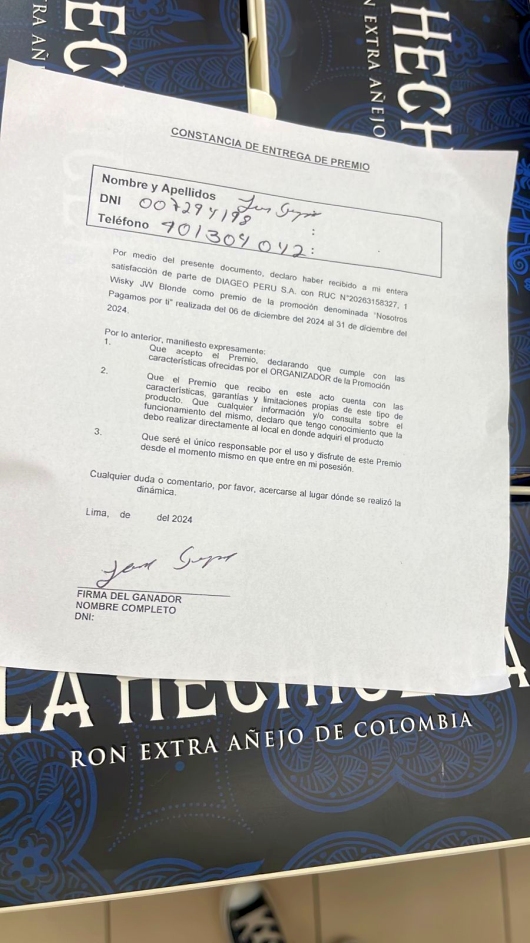 EC
RA AÑ
HECH
N EXTRA AÑEJO
CONSTANCIA DE ENTREGA DE PREMIO
Nombre y Apellidos :
DNI 007294198 :
Teléfono 901304042 :
Por medio del presente documento, declaro haber recibido a mi entera
satisfacción de parte de DIAGEO PERU S.A. con RUC N°20263158327, 1
Wisky JW Blonde como premio de la promoción denominada "Nosotros
Pagamos por ti" realizada del 06 de diciembre del 2024 al 31 de diciembre del
2024.
Por lo anterior, manifiesto expresamente:
1. Que acepto el Premio, declarando que cumple con las
características ofrecidas por el ORGANIZADOR de la Promoción
2. Que el Premio que recibo en este acto cuenta con las
características, garantías y limitaciones propias de este tipo de
producto. Que cualquier información y/o consulta sobre el
funcionamiento del mismo, declaro que tengo conocimiento que la
debo realizar directamente al local en donde adquirí el producto
3. Que seré el único responsable por el uso y disfrute de este Premio
desde el momento mismo en que entre en mi posesión.
Cualquier duda o comentario, por favor, acercarse al lugar dónde se realizó la
dinámica.
Lima, de del 2024
FIRMA DEL GANADOR
NOMBRE COMPLETO
DNI:
LA HECHICE A
RON EXTRA AÑEJO DE COLOMBIA